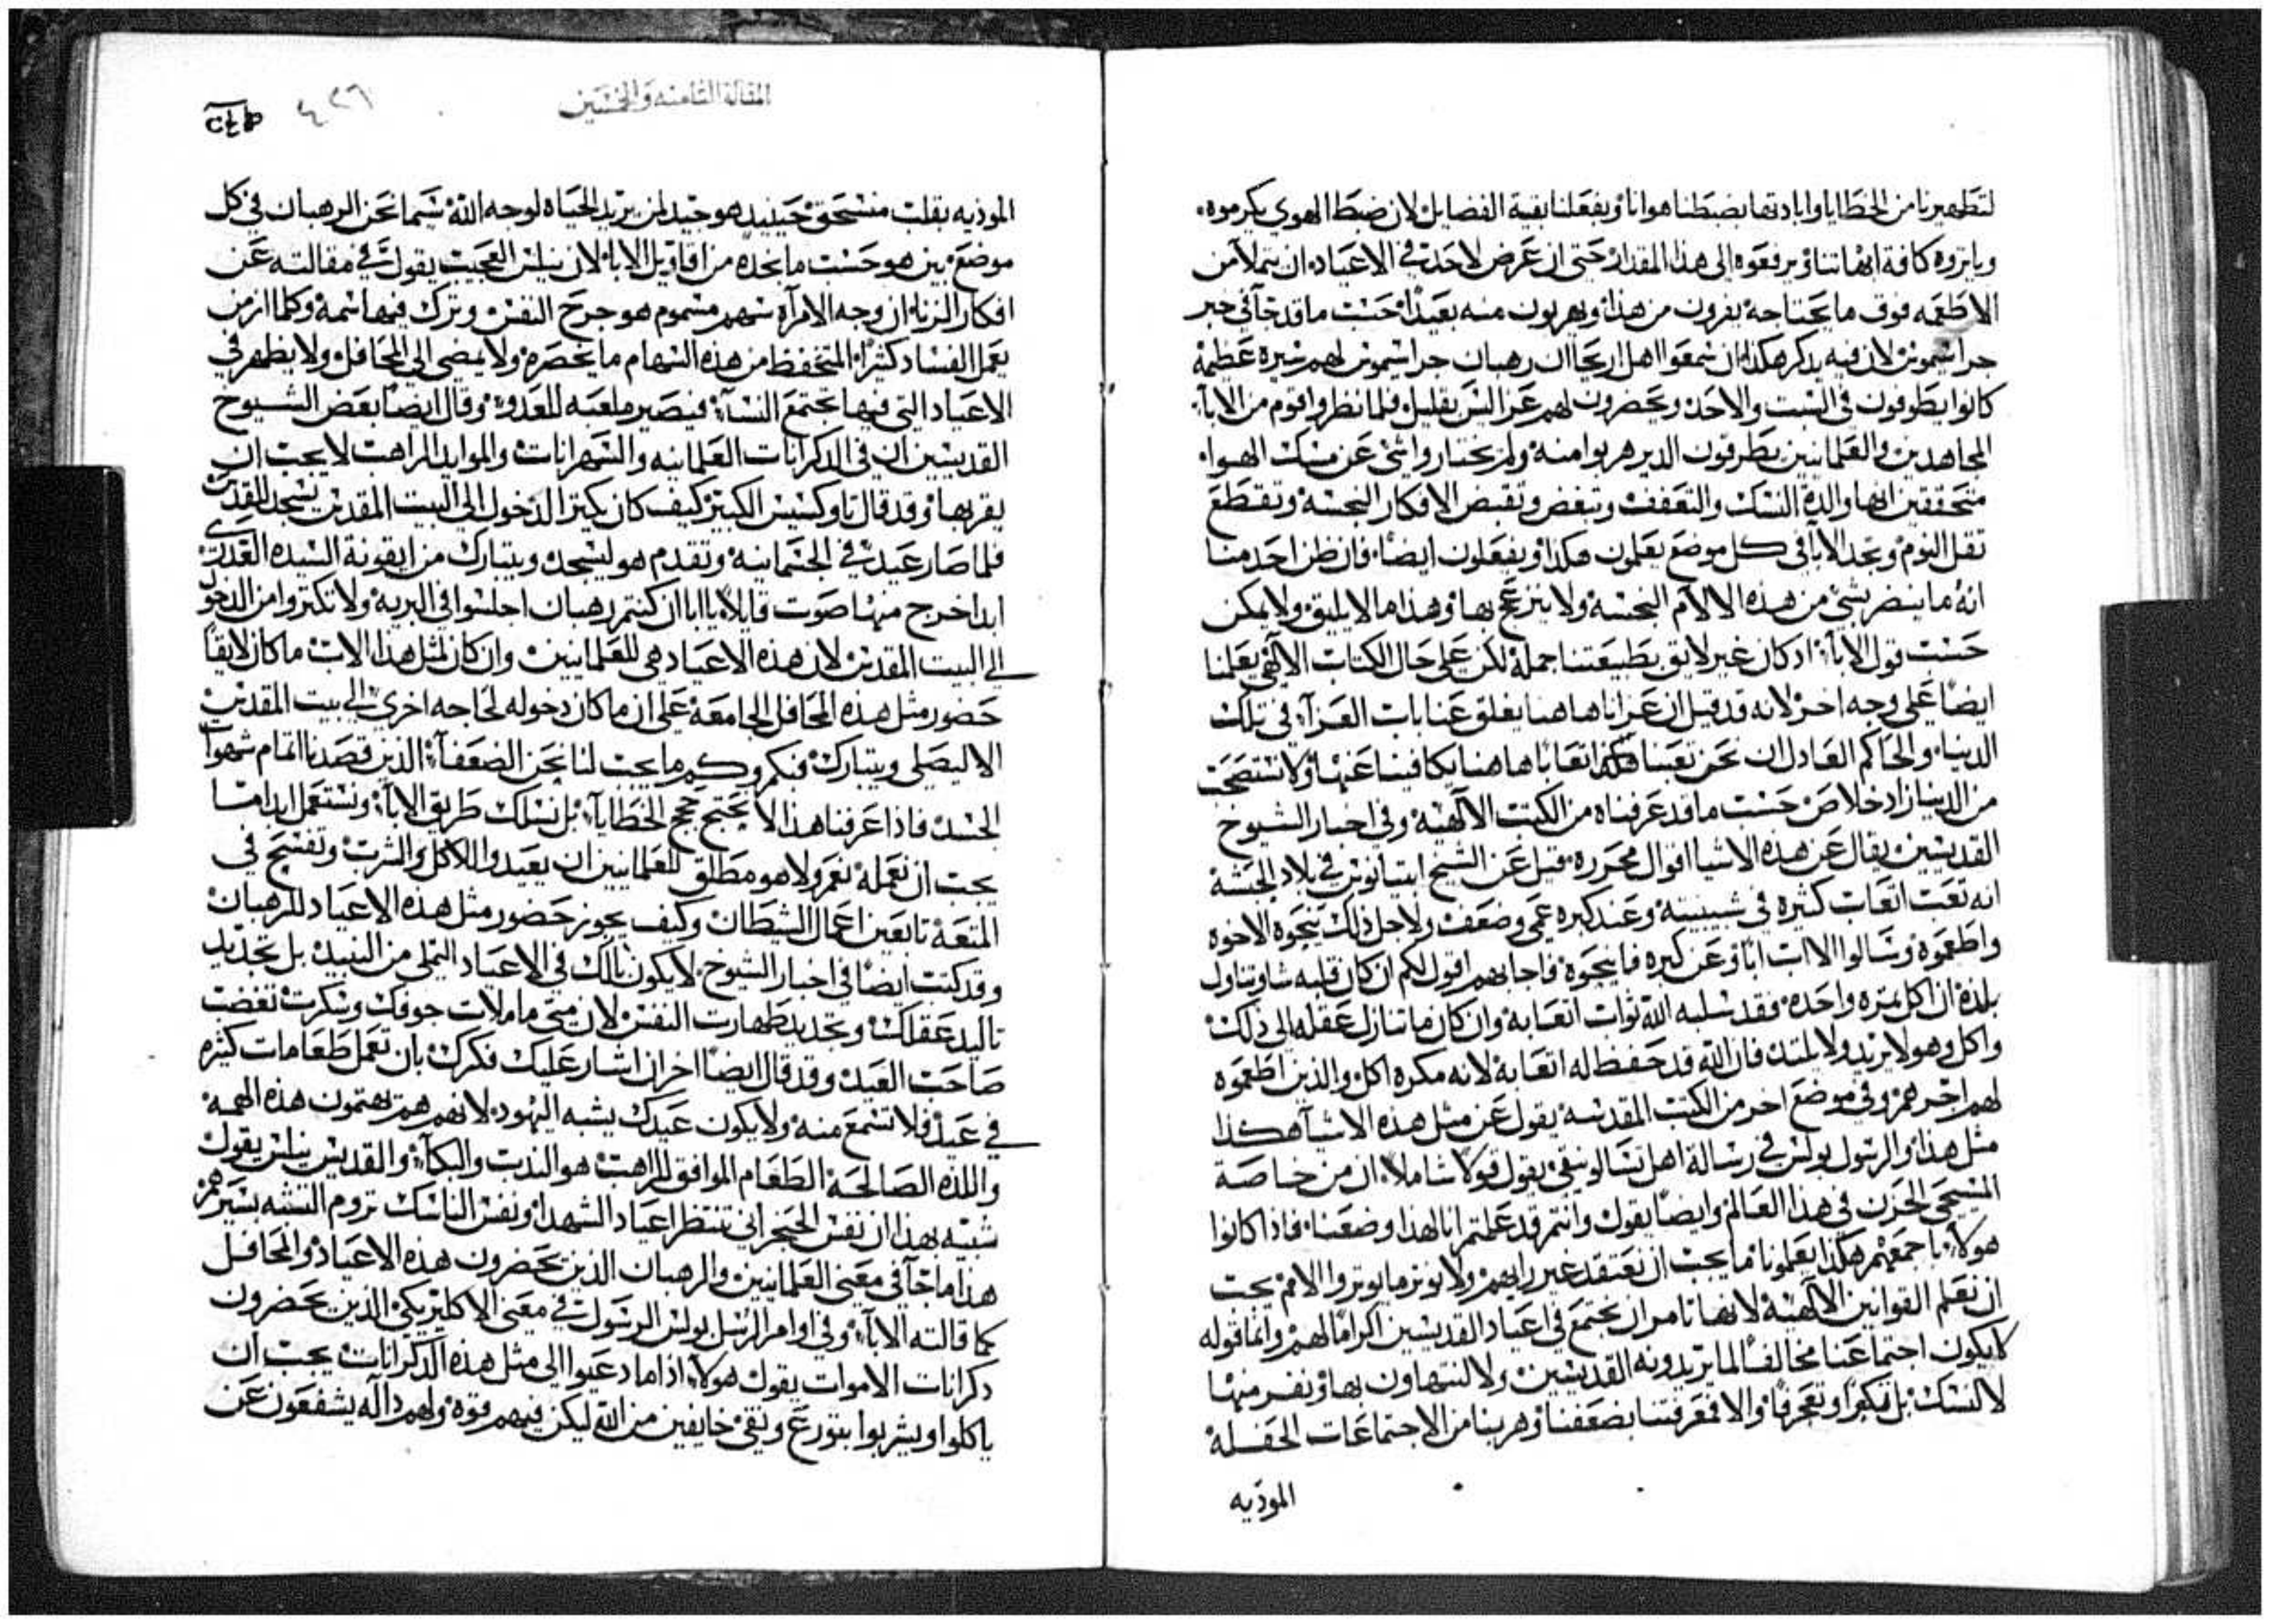 لتطهيرنا من الخطايا وابادتها بضبطنا هوانا وبفعلنا بقية الفضايل لان ضبط الهوي يكرموه
وياثروه كافة ابهاتنا ويرفعوه الى هذا المقدار حتى ان عرض لاحد في الاعياد ان يتملا من
الاطعمه فوق ما يحتاجه يفرون من هذا ويهربون منه بعيدا حسب ما قد جا في خبر
جراسيموس لان فيه يدكر هكذا ان سمعوا اهل اريحا ان رهبان جراسيموس لهم سيره عظيمه
كانوا يطوفون في السبت والاحد ويحضرون لهم فلما نظروا قوم من الابا
المجاهدين والعلمانيين يطرقون الدير هربوا منه ولم يختاروا شي عن مسك الهوا
متحققين انها والدة النسك والتعفف وتبغض وتقبض الافكار النجسه وتقطع
ثقل النوم وتجد الابا في كل موضع يعلمون هكذا ويفعلون ايضا فان ظن احد منا
انه ما ينضر بشي من هذه الالام النجسه ولا ينزعج بها وهذا ما لا يليق ولا يمكن
حسب قول الابا اد كان غير لايق بطبيعتنا جملة لكن على حال الكتاب الالهي يعلمنا
ايضا على وجه اخر لانه قد قيل ان عزانا هاهنا يغلق عنا باب العزا في تلك
الدينا والحاكم العادل ان نحن تعبنا هكذا اتعابا هاهنا يكافينا عنها ولا نستصحب
من الدينا زاد خلاص حسب ما قد عرفناه من الكتب الالهيه وفي اخبار الشيوخ
القديسين يقال عن هذه الاشيا اقوال محرره قيل عن الشيخ في بلاد الحبشه
انه تعب اتعاب كثيره في شبيبته وعند كبره عمي وضعف ولاجل ذلك الاخوه
واطعموه وسالوا الاب عن كبره فاجابهم اقول لكم ان كان قلبه شا وتناول
بلدة ان اكل تمره واحده فقد سلبه الله ثواب اتعابه وان كان ما تنازل عقله الى ذلك
واكل وهو لا يريد ولا يلتد فان الله قد حفظ له اتعابه لانه مكره اكل والذين اطعموه
لهم اجرهم وفي موضع اخر من الكتب المقدسه يقول عن مثل هذه الاشيا هكذا
مثل هذا والرسول بولس في رسالة اهل تسالونيقي يقول قولا شاملا ان من خاصة
المسيحي الحزن في هذا العالم وايضا يقول وانتم قد علمتم انا لهذا وضعنا فاذا كانوا
هولا باجمعهم هكذا يعلمونا ما يجب ان نعتقد غير رايهم ولا نوثر ما يوثروا الامم يجب
ان نعلم القوانين الالهيه لانها تامر ان نجتمع في اعياد القديسين اكراما لهم وانما قوله
لا يكون اجتماعنا مخالفا لما يريدونه القديسين ولا لنتهاون بها ونفر منها
لا لنسك بل تكبرا وتعجرفا والا فمعرفتنا بضعفنا وهربنا من الاجتماعات الحفله
الموديه
المقالة الثامنه والخمسين
٤٢٦
الموديه بقلب منسحق حينيد هو جيد لمن يريد الحياه لوجه الله سيما نحن الرهبان في كل
موضع بين هو حسب ما نجده من اقاويل الابا لان نيلس العجيب يقول في مقالته عن
افكار الزنا ان وجه الامراه سهم مسموم هو جرح النفس وترك فيها سمه وكلما ازمن
يعمل الفساد كثيرا المتحفظ من هذه السهام ما يحضره ولا يمضي الى المحافل ولا يظهر في
الاعياد التي فيها تجتمع النسا فيصير ملعبه للعدو وقال ايضا بعض الشيوخ
القديسين ان في الدكرانات العلمانيه والسهرانات والموايد الراهب لا يجب ان
يقربها وقد قال تاوكتيس الكبير كيف كان يكثر الدخول الى البيت المقدس يسجد للقدس
فلما صار عيد في الجتمانيه وتقدم هو ليسجد ويتبارك من ايقونة السيده العدرى
ابدا خرج منها صوت قايلا يا ابا ان كنتم رهبان اجلسوا في البريه ولا تكتروا من الدخول
الى البيت المقدس لان هذه الاعياد هي للعلمانيين وان كان لمثل هذا الاب ما كان لايقا
حضور مثل هذه المحافل الجامعه على ان ما كان دخوله لحاجه اخرى الى بيت المقدس
الا ليصلي ويتبارك فبكم وكم ما يجب لنا نحن الضعفا الذين قصدنا اتمام شهوات
الجسد فاذا عرفنا هذا لا نحتج حجج الخطايا بل نسلك طريق الابا ونستعمل ابدا ما
يجب ان نعمله نعم ولا هو مطلق للعلمانيين ان يعيدوا للاكل والشرب وتفسح في
المتعة تابعين اعمال الشيطان وكيف يجوز حضور مثل هذه الاعياد للرهبان
وقد كتب ايضا في اخبار الشيوخ لا يكون بالك في الاعياد التملي من النبيد بل بتجديد
عقلك وتجديد طهارت النفس لان متى ما ملات جوفك وسكرت تغضب
صاحب العيد وقد قال ايضا اخر ان اشار عليك فكرك بان تعمل طعامات كثيره
في عيد فلا تسمع منه ولا يكون عيدك يشبه اليهود لانهم هم يهتمون هذه الهمه
واللده الصالحه الطعام الموافق للراهب هو الندب والبكا والقديس نيلس يقول
شبيه بهذا ان نفس الحنجراني تنتظر اعياد الشهدا ونفس الناسك تروم التشبه بسيرهم
هذا ما جا في معنى العلمانيين والرهبان الذين يحضرون هذه الاعياد والمحافل
كما قالته الابا وفي اوامر الرسل بولس الرسول في معنى الاكليريكي الذين يحضرون
دكرانات الاموات يقول هولا اذا ما دعيوا الى مثل هذه الدكرانات يجب ان
ياكلوا ويشربوا بتورع وتقي خايفين من الله ليكن فيهم قوة ولهم داله يشفعون عن